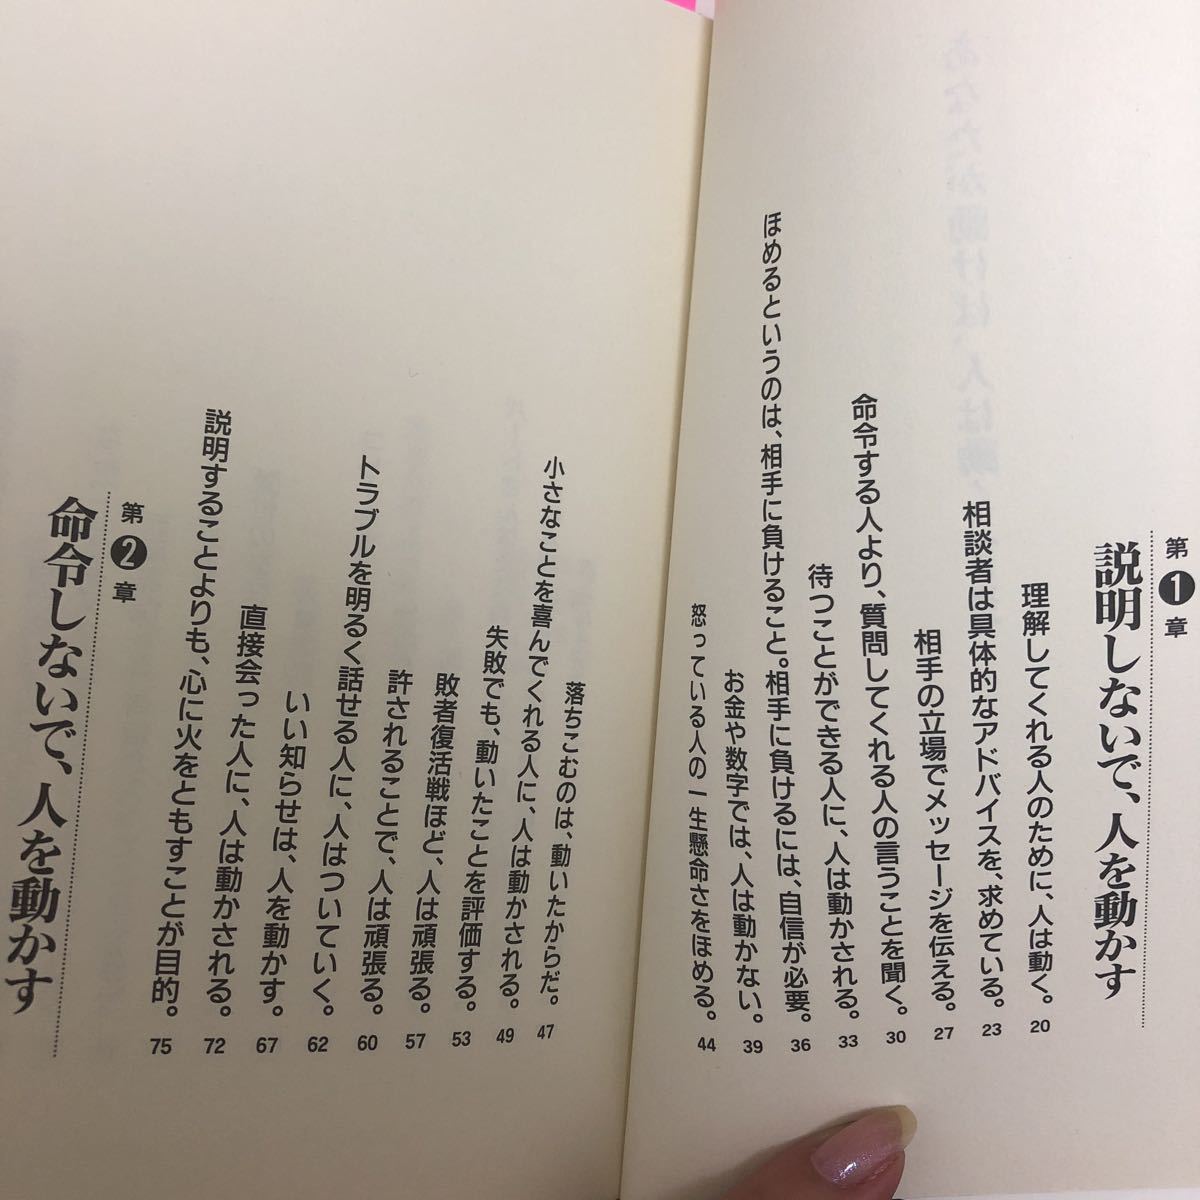 第1章
説明しないで、人を動かす
理解してくれる人のために、人は動く。 20
相談者は具体的なアドバイスを、求めている。 23
相手の立場でメッセージを伝える。 27
命令する人より、質問してくれる人の言うことを聞く。 30
待つことができる人に、人は動かされる。 33
ほめるというのは、相手に負けること。相手に負けるには、自信が必要。 36
お金や数字では、人は動かない。 39
怒っている人の一生懸命さをほめる。 44
落ちこむのは、動いたからだ。 47
小さなことを喜んでくれる人に、人は動かされる。 49
失敗でも、動いたことを評価する。 53
敗者復活戦ほど、人は頑張る。 57
許されることで、人は頑張る。 60
トラブルを明るく話せる人に、人はついていく。 62
いい知らせは、人を動かす。 67
直接会った人に、人は動かされる。 72
説明することよりも、心に火をともすことが目的。 75
第2章
命令しないで、人を動かす